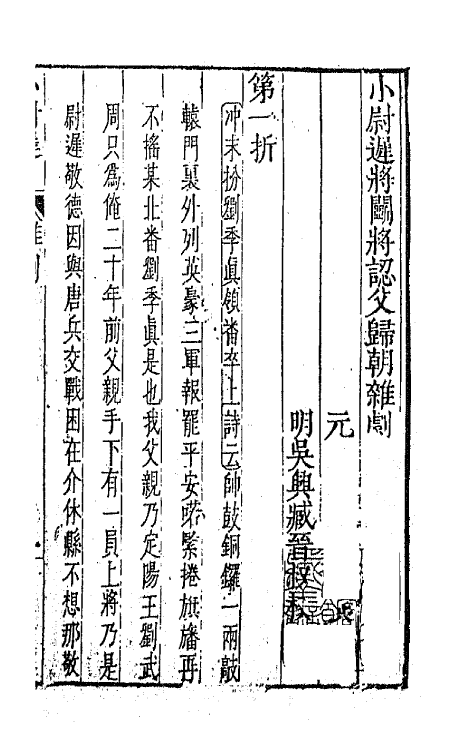 小尉遲將鬭將認父歸朝雜劇
元
明吳興臧晉叔校
第一折
冲末扮劉季眞領番卒上詩云帥鼓銅鑼一兩敲
轅門裏外列英豪三軍報罷平安喏緊捲旗旛再
不搖某北番劉季眞是也我父親乃定陽王劉武
周只爲俺二十年前父親手下有一員上將乃是
尉遲敬德因與唐兵交戰困在介休縣不想那敬